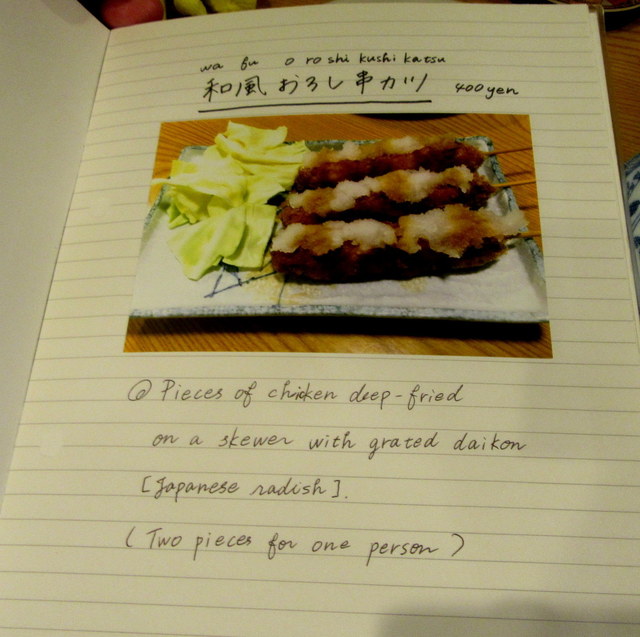 wa fu o ro shi kushi katsu
和風 おろし 串カツ 400yen
@ Pieces of chicken deep-fried
on a skewer with grated daikon
[Japanese radish].
(Two pieces for one person)